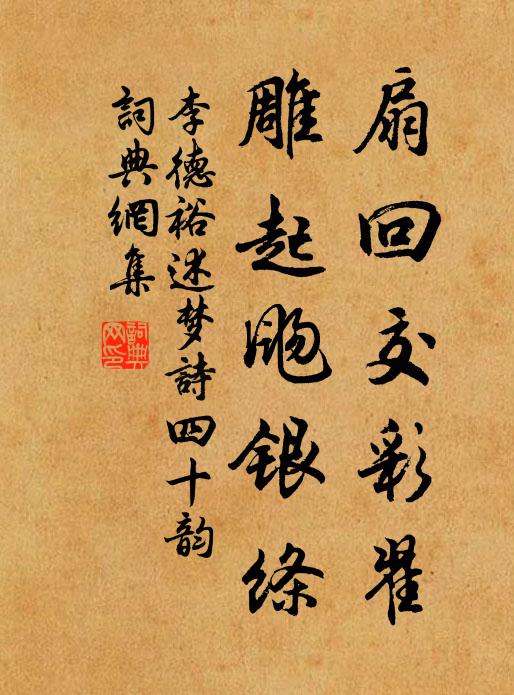 扇回交彩翟
雕起飏銀絛
李德裕述梦詩四十韵
詞典網集
詞典
网印